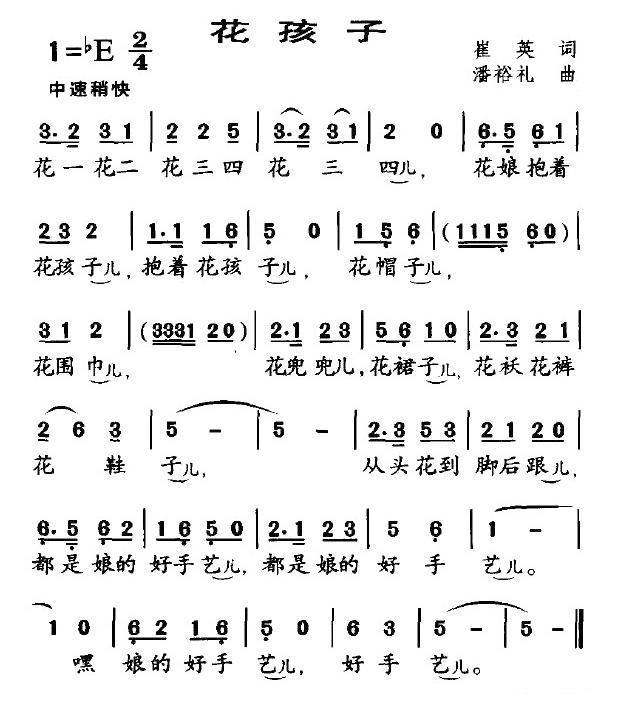 花孩子
1=♭E 2/4
崔英 词
中速稍快
潘裕礼 曲
3. 2 3 1 | 2 2 5 | 3. 2 3 1 | 2 0 | 6. 5 6 1 |
花一花二 花三四 花 三 四儿, 花娘抱着
2 3 2 | 1. 1 1 6 | 5 0 | 1 5 6 | (1 1 1 5 6 0) |
花孩子儿, 抱着花孩 子儿, 花帽子儿,
3 1 2 | (3 3 3 1 2 0) | 2. 1 2 3 | 5 6 1 0 | 2. 3 2 1 |
花围巾儿, 花兜兜儿, 花裙子儿, 花袄花裤
2 6 3 | 5 - | 5 - | 2. 3 5 3 | 2 1 2 0 |
花 鞋 子儿, 从头花到 脚后跟儿,
6. 5 6 2 | 1 6 5 0 | 2. 1 2 3 | 5 6 | 1 - |
都是娘的 好手艺儿, 都是娘的 好 手 艺儿。
1 0 | 6 2 1 6 | 5 0 | 6 3 | 5 - | 5 - ‖
嘿 娘的好手 艺儿, 好手 艺儿。